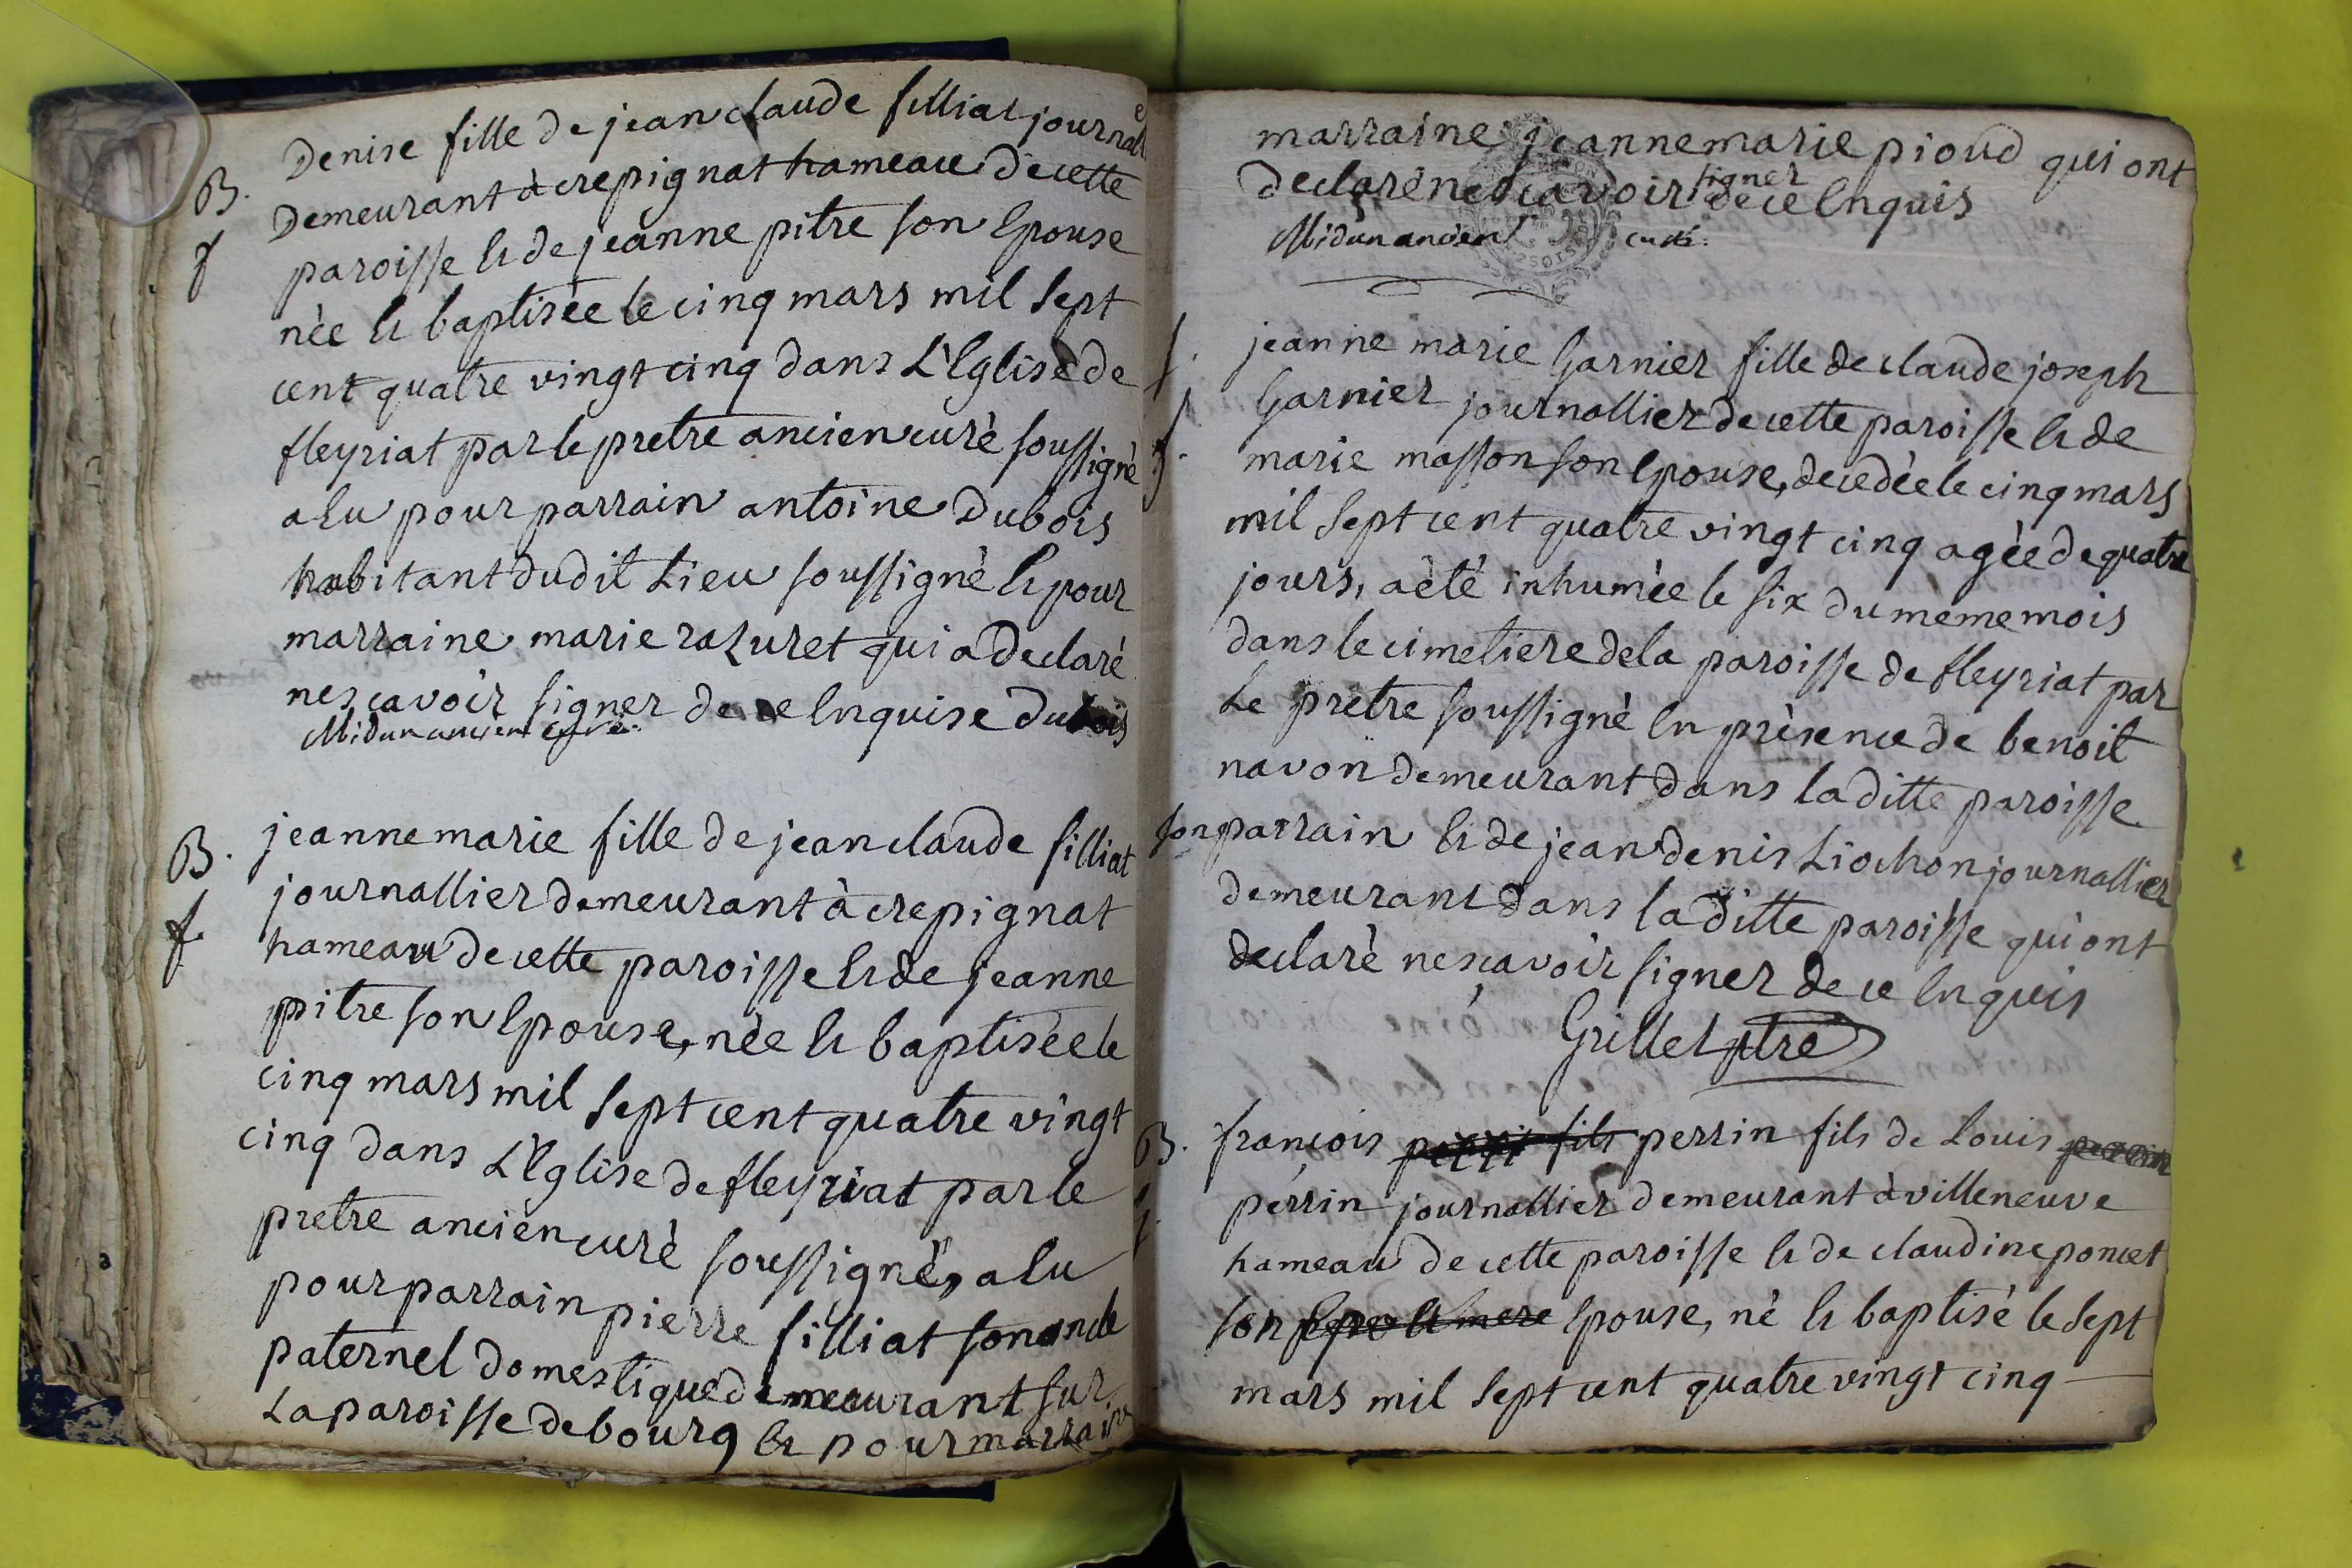 B.
f
Denise fille de jean claude filliat journal
Demeurant à crepignat hameau de cette
paroisse & de jeanne pitre son Epouse
née & baptisée le cinq mars mil sept
cent quatre vingt cinq dans L'Eglise de
fleyriat par le pretre ancien curé soussigné
a Eu pour parrain antoine Dubois
habitant dudit Lieu soussigné & pour
marraine marie razuret qui a Declaré
ne scavoir signer de ce Enquise dubois
Midun ancien curé.
B.
f.
jeanne marie fille de jean claude filliat
journallier demeurant à crepignat
hameau de cette paroisse & de jeanne
pitre son Epouse, née & baptisée le
cinq mars mil sept cent quatre vingt
cinq dans L'Eglise de fleyriat par le
pretre ancien curé soussigné, a Eu
pour parrain pierre filliat son oncle
paternel domestique demeurant sur
La paroisse de bourg & pour marrain
marraine jeanne marie pioud qui ont
declaré ne scavoir signer de ce Enquis
Midun ancien curé.
f.
jeanne marie Garnier fille de claude joseph
Garnier journallier de cette paroisse & de
marie masson son Epouse, decedée le cinq mars
mil sept cent quatre vingt cinq agée de quatre
jours, a été inhumée le six du meme mois
dans le cimetiere de la paroisse de fleyriat par
Le prêtre soussigné En présence de benoit
navon demeurant dans la ditte paroisse
son parrain & de jean denis Liochon journallier
demeurant dans la ditte paroisse qui ont
declaré ne scavoir signer de ce Enquis
Grillet ptre
B.
françois fils perrin fils de Louis perrin
perrin journallier demeurant à villeneuve
hameau de cette paroisse & de claudine poncet
son pere & mere Epouse, né & baptisé le sept
mars mil sept cent quatre vingt cinq